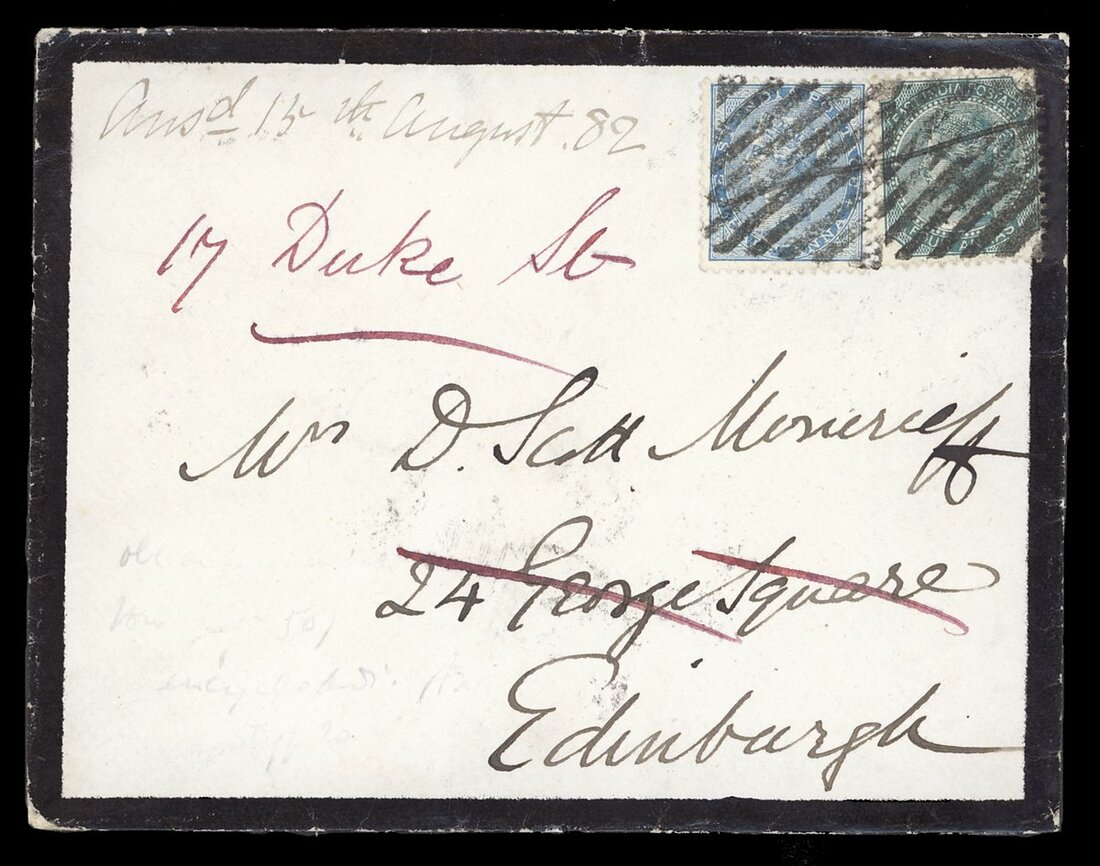 Ansd 15th August. 82
EAST INDIA POSTAGE
17 Duke St
Mrs D. Scott Moncrieff
24 George Square
Edinburgh